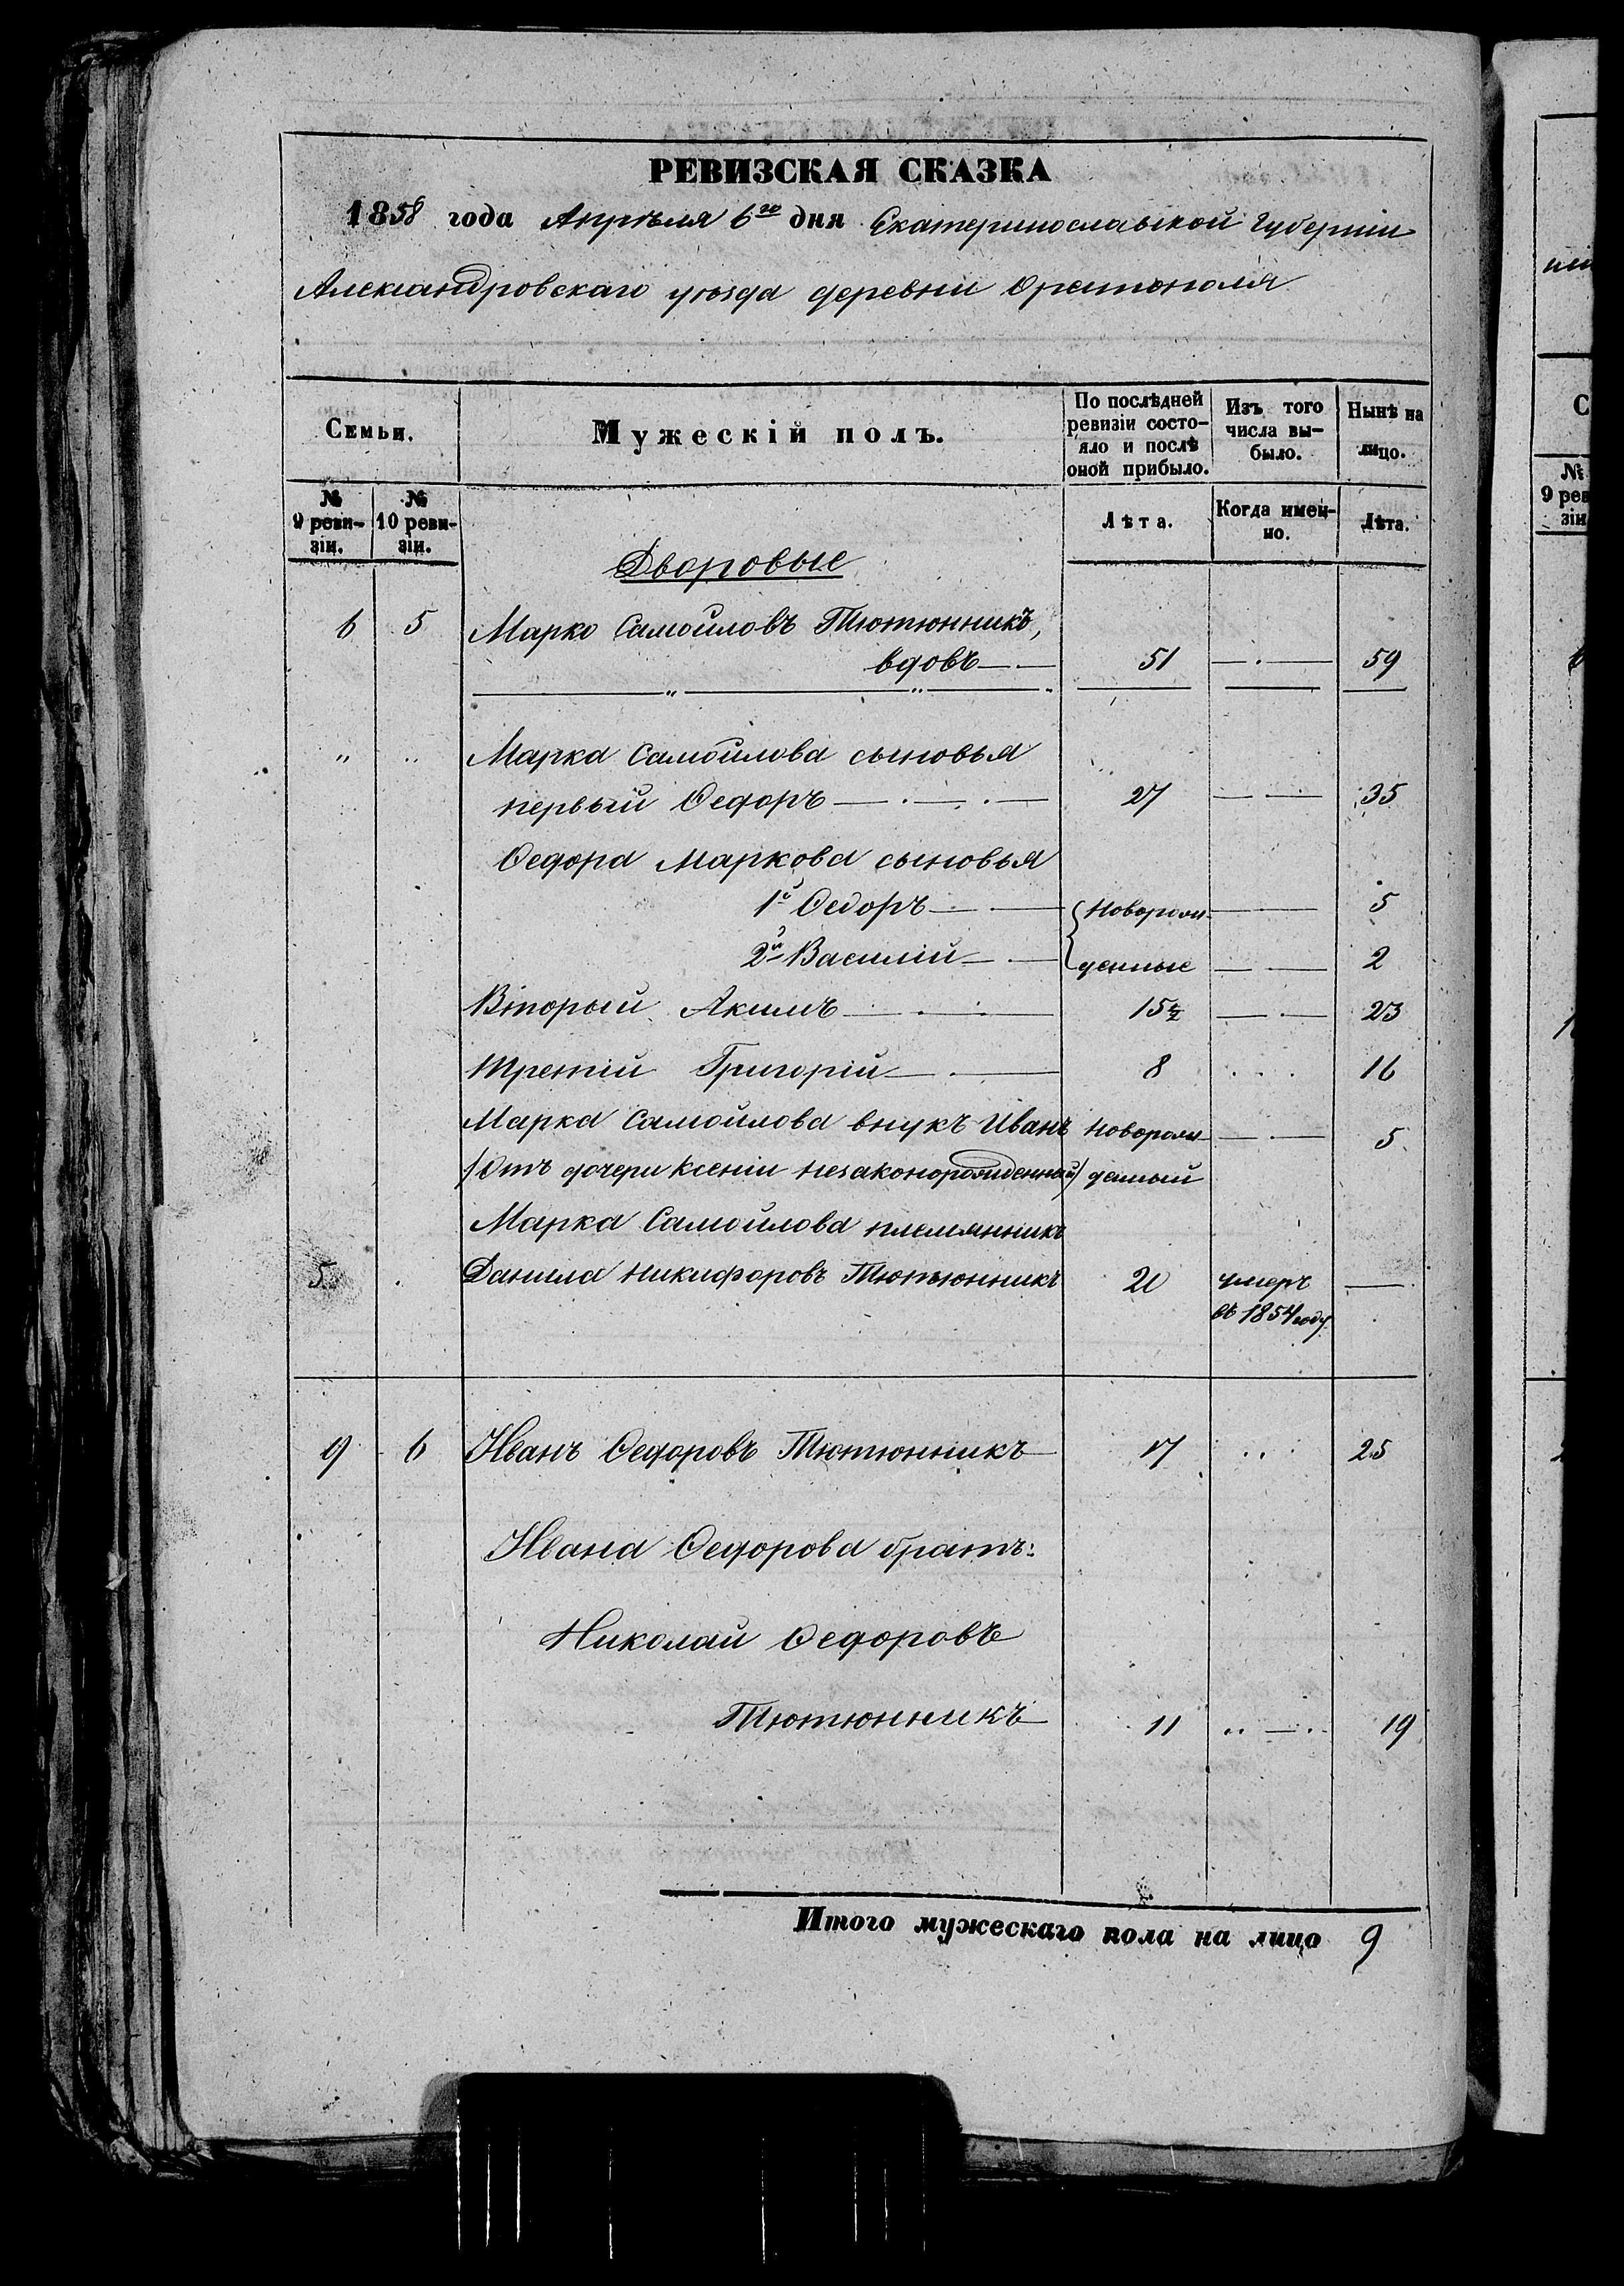 РЕВИЗСКАЯ СКАЗКА
1858 года Апрѣля 6го дня Екатеринославской Губерніи
Александровскаго уѣзда деревни Орлитополя
Семьи.
Мужескій полъ.
По послѣдней ревизіи состо-
яло и послѣ
оной прибыло.
Изъ того
числа вы-
было.
Нынѣ на
лицо.
№ 9 реви-
зіи.
№ 10 реви-
зіи.
Лѣта.
Когда имен-
но.
Лѣта.
Дворовые
6 5 Марко Самойловъ Тютюнникъ,
вдовъ 51 59
" " Марка Самойлова сыновья
первый Ѳедоръ 27 35
Ѳедора Маркова сыновья
1й Ѳедоръ новорож- 5
2й Василій денные 2
Второй Акимъ 15½ 23
Третій Григорій 8 16
Марка Самойлова внукъ Иванъ новорож- 5
/Отъ дочери Ксеніи незаконорожденный/ денный
Марка Самойлова племянникъ
5 Данила Никифоровъ Тютюнникъ 20 умеръ
въ 1854 году
9 6 Иванъ Ѳедоровъ Тютюнникъ 17 25
Ивана Ѳедорова братъ:
Николай Ѳедоровъ
Тютюнникъ 11 19
Итого мужескаго пола на лицо 9